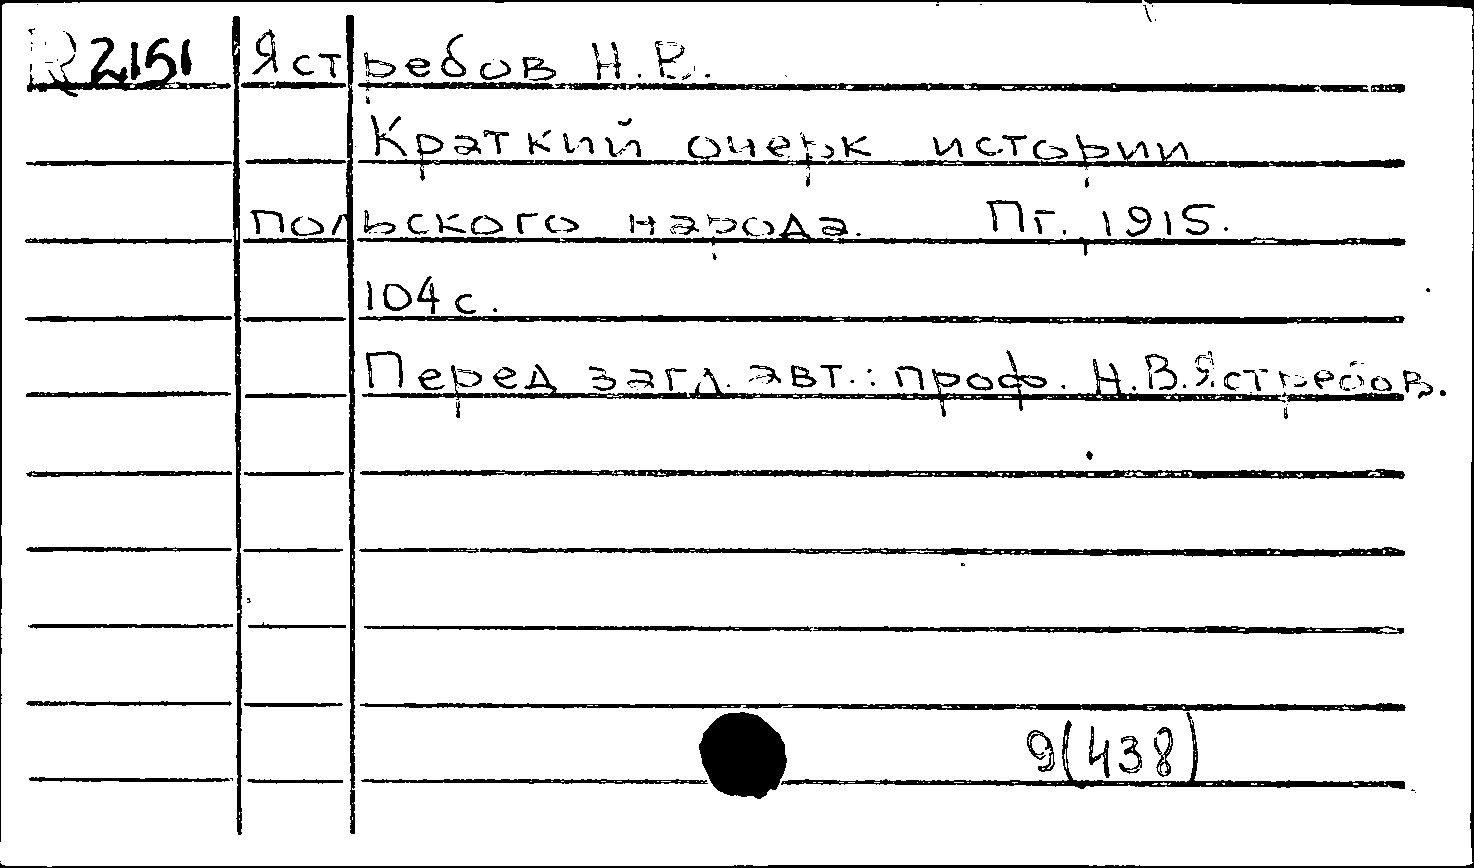 R 2151 Ястребов Н.В.
Краткий очерк истории
польского народа. Пг., 1915.
104 с.
Перед загл. авт.: проф. Н.В.Ястребов.
9(438)